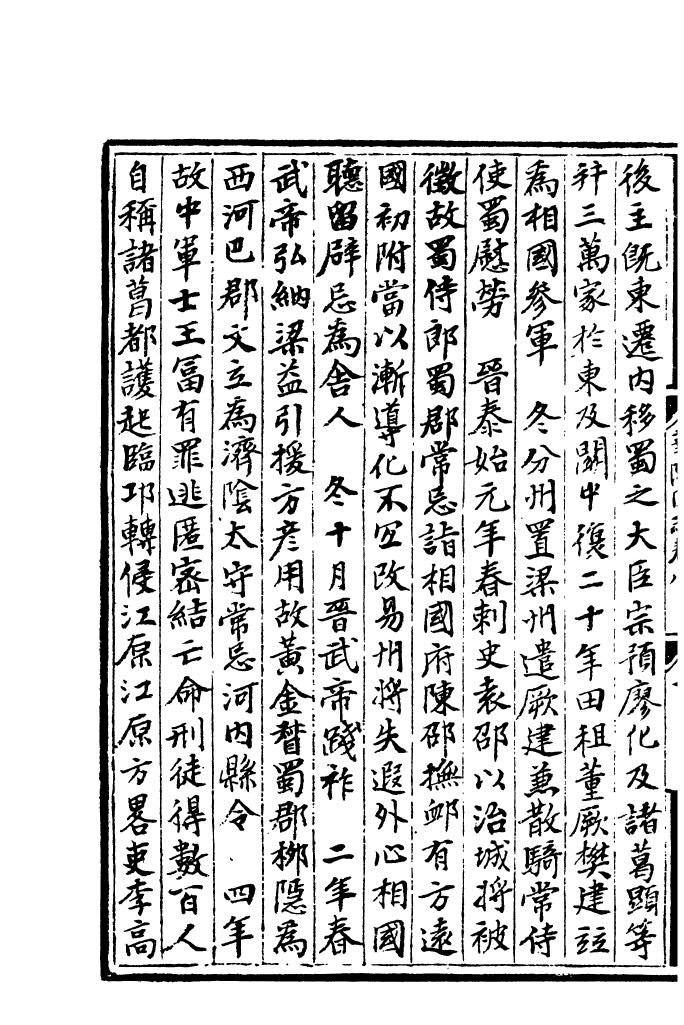 後主既東遷內移蜀之大臣宗預廖化及諸葛顯等
并三萬家於東及關中復二十年田租董厥樊建並
爲相國參軍　冬分州置梁州遣厥建兼散騎常侍
使蜀慰勞　晉泰始元年春刺史袁邵以治城將被
徵故蜀侍郎蜀郡常忌詣相國府陳邵撫卹有方遠
國初附當以漸導化不宜改易州將失遐外心相國
聽留辟忌爲舍人　冬十月晉武帝踐祚　二年春
武帝弘納梁益引援方彥用故黃金督蜀郡柳隱爲
西河巴郡文立爲濟陰太守常忌河內縣令　四年
故中軍士王富有罪逃匿密結亡命刑徒得數百人
自稱諸葛都護起臨邛轉侵江原江原方畧吏李高